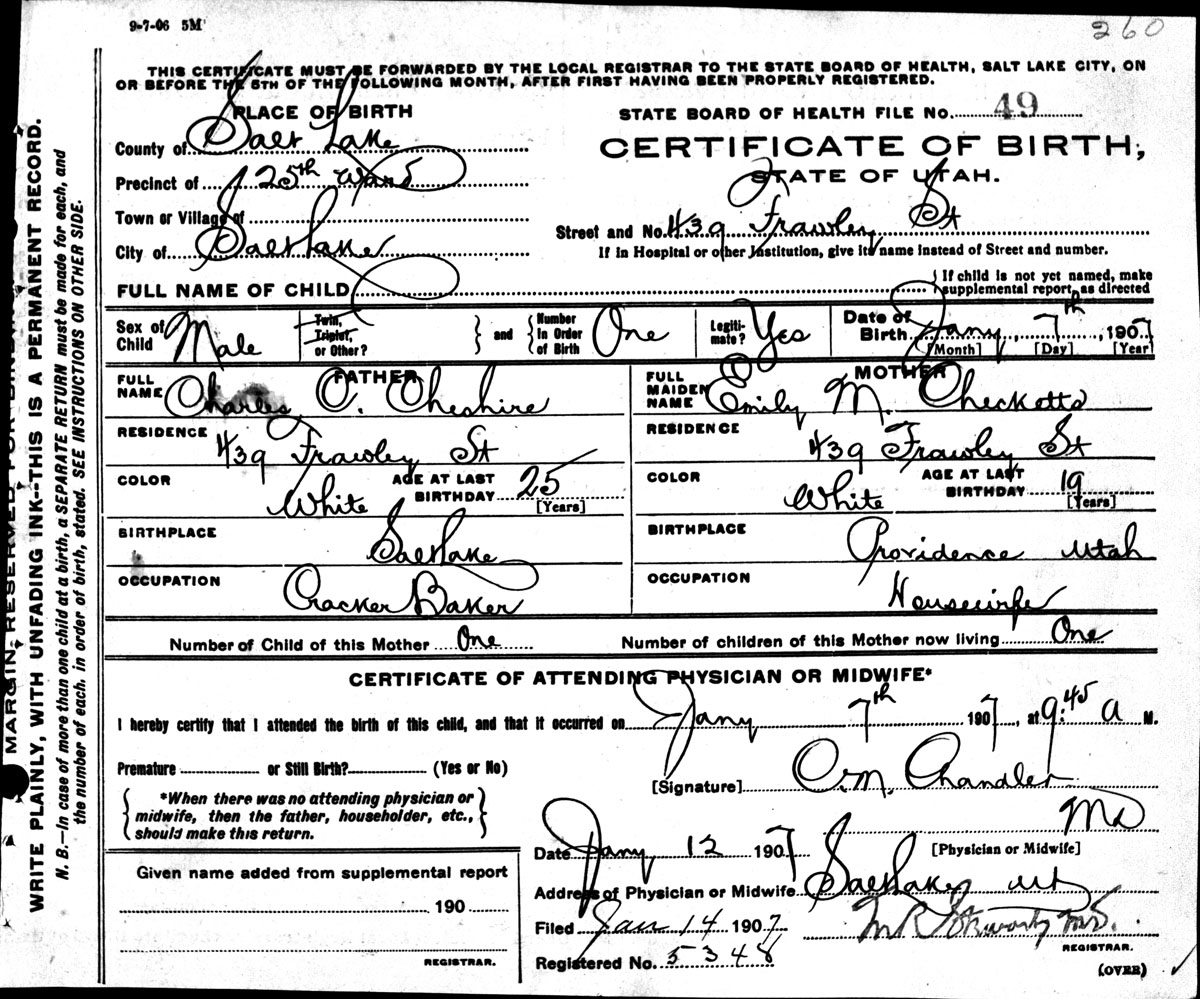 9-7-06 5M
260
THIS CERTIFICATE MUST BE FORWARDED BY THE LOCAL REGISTRAR TO THE STATE BOARD OF HEALTH, SALT LAKE CITY, ON
OR BEFORE THE 5TH OF THE FOLLOWING MONTH, AFTER FIRST HAVING BEEN PROPERLY REGISTERED.
PLACE OF BIRTH
STATE BOARD OF HEALTH FILE NO. 49
County of Salt Lake
CERTIFICATE OF BIRTH,
Precinct of 25th Ward
STATE OF UTAH.
Town or Village of
Street and No. 439 Frawley St
City of Salt Lake
If in Hospital or other Institution, give its name instead of Street and number.
FULL NAME OF CHILD
If child is not yet named, make
supplemental report, as directed
Sex of Child Male
Twin, Triplet, or Other?
and
Number in Order of Birth One
Legiti- mate? Yes
Date of Birth Jany 7th, 1907
[Month] [Day] [Year]
FATHER
FULL NAME Charles O. Cheshire
RESIDENCE 439 Frawley St
COLOR White AGE AT LAST BIRTHDAY 25 [Years]
BIRTHPLACE Salt Lake
OCCUPATION Cracker Baker
MOTHER
FULL MAIDEN NAME Emily M. Checketts
RESIDENCE 439 Frawley St
COLOR White AGE AT LAST BIRTHDAY 19 [Years]
BIRTHPLACE Providence Utah
OCCUPATION Housewife
Number of Child of this Mother One Number of children of this Mother now living One
CERTIFICATE OF ATTENDING PHYSICIAN OR MIDWIFE*
I hereby certify that I attended the birth of this child, and that it occurred on Jany 7th 1907, at 9:45 A M.
Premature or Still Birth? (Yes or No)
[Signature] C.M. Chandler
*When there was no attending physician or
midwife, then the father, householder, etc.,
should make this return.
MD
[Physician or Midwife]
Date Jany 12 1907
Address of Physician or Midwife Salt Lake Ut
Filed Jan 14 1907
REGISTRAR.
Registered No. 5348
(OVER)
Given name added from supplemental report
190
REGISTRAR.
MARGIN RESERVED FOR
WRITE PLAINLY, WITH UNFADING INK--THIS IS A PERMANENT RECORD.
N. B.—In case of more than one child at a birth, a SEPARATE RETURN must be made for each, and
the number of each, in order of birth, stated. SEE INSTRUCTIONS ON OTHER SIDE.